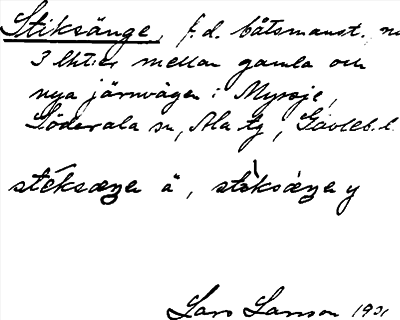 Stiksänge, f.d. båtsmanst. n
3 lht:er mellan gamla och
nya järnvägen i Myssje,
Söderala sn, Ala tg, Gävleb. l.
stéksæŋen ä, stèksǽŋen y
Lars Larsson 1931